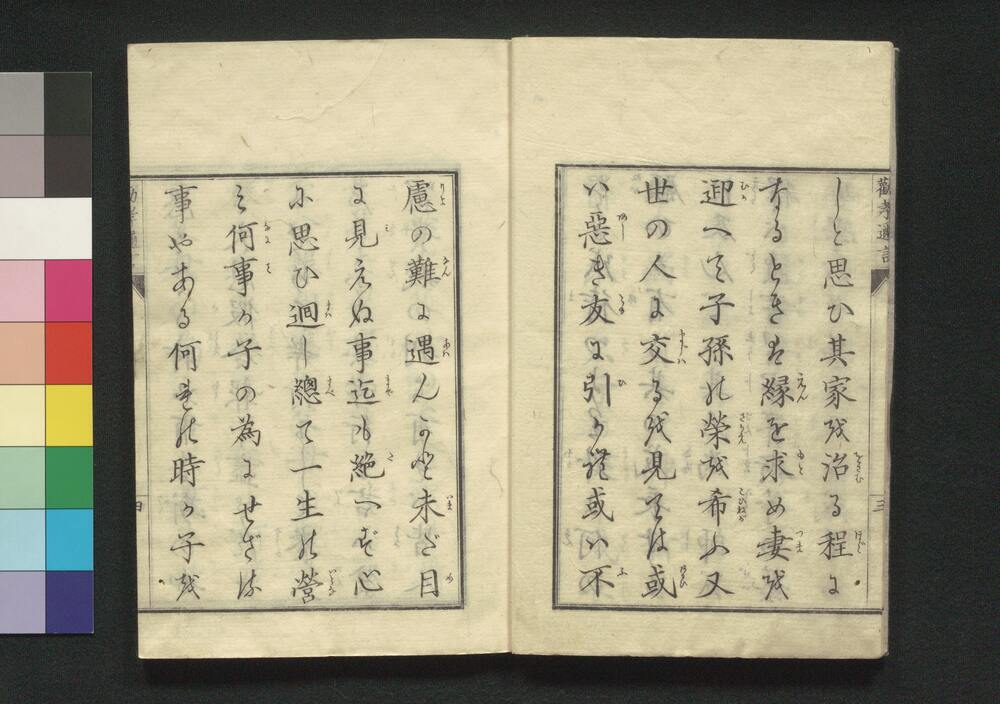 勸孝邇言
しと思ひ其家を治る程に
なるときは縁を求め妻を
迎へて子孫の榮を希ふ又
世の人に交るを見ては或
は惡き友に引か禮或は不
三
慮の難に遇んかと未だ目
に見えぬ事迄も絶へず心
に思ひ迴し總て一生の營
み何事か子の為にせざる
事やある何れの時か子を
四